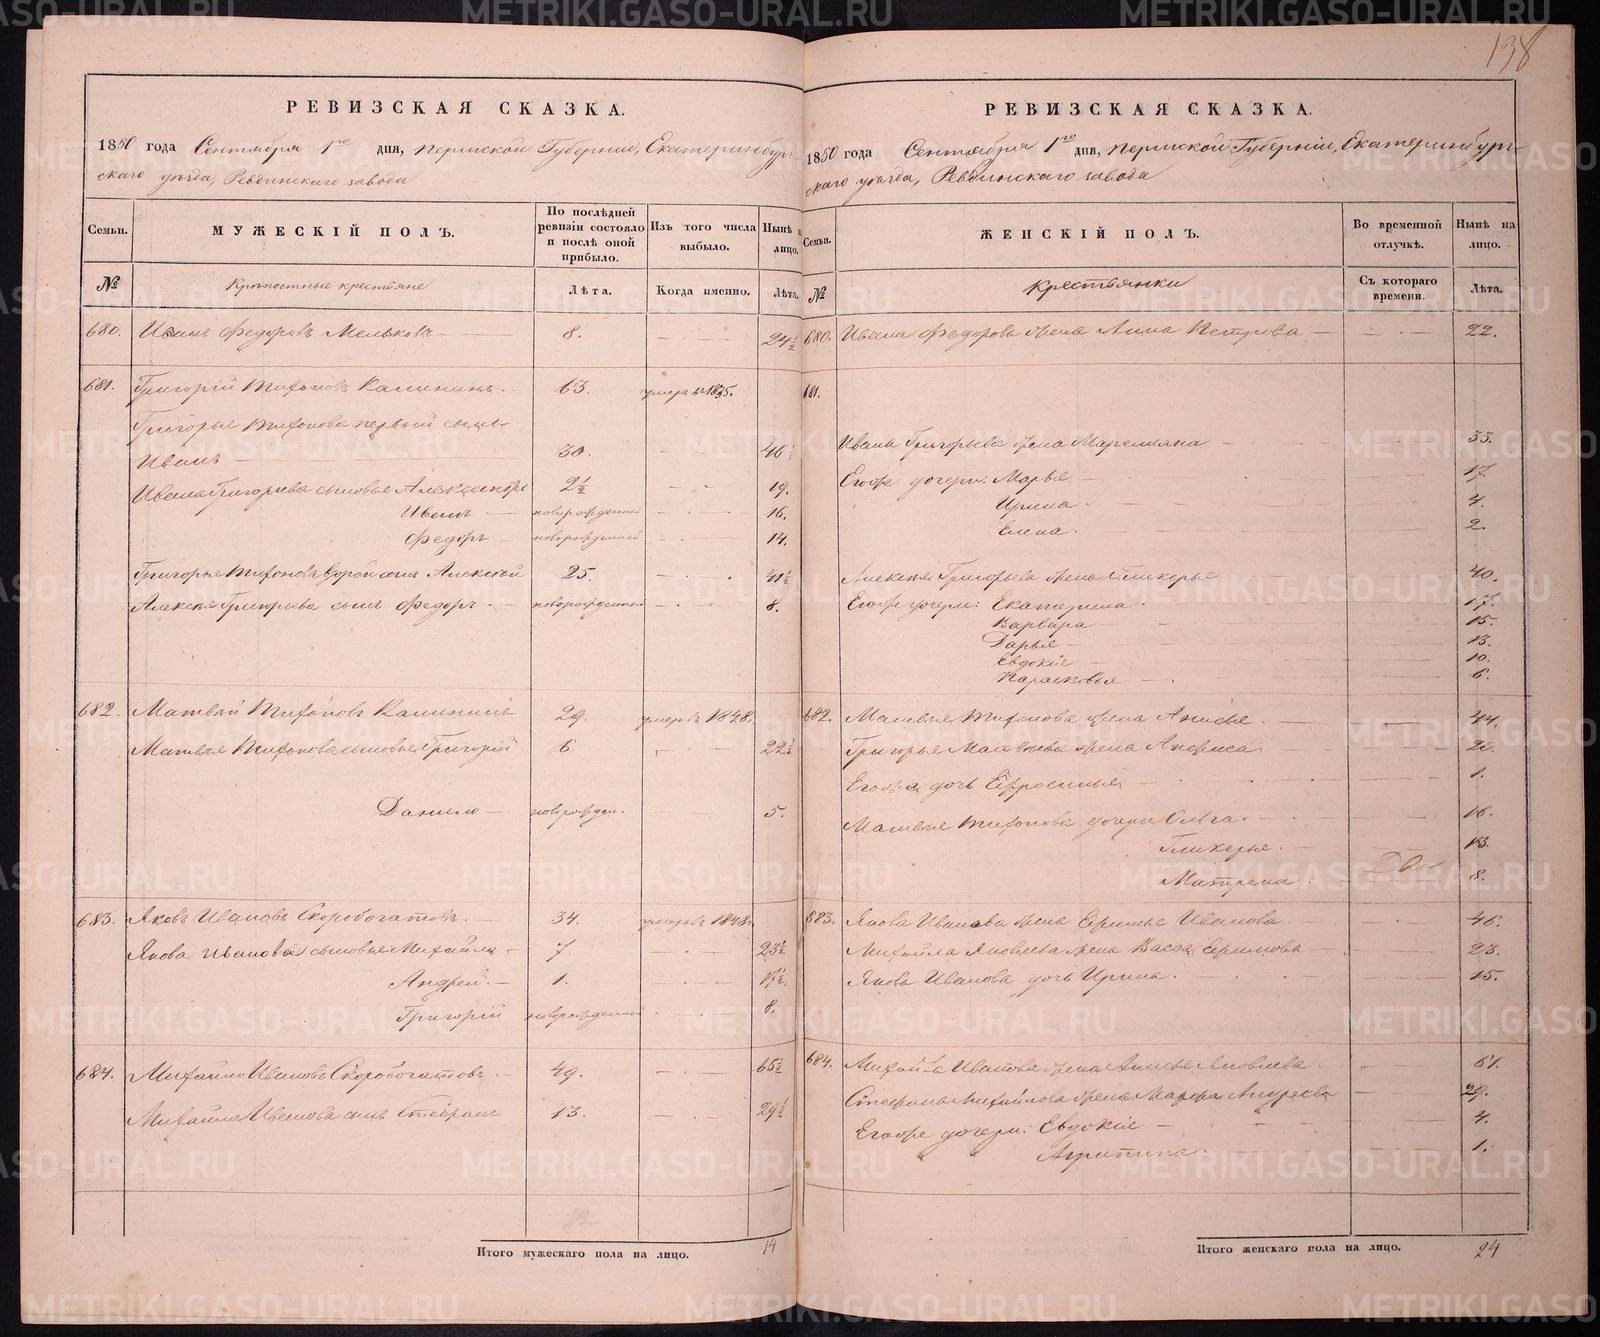 138
РЕВИЗСКАЯ СКАЗКА.
1850 года Сентября 1го дня, Пермской Губернiи, Екатеринбург-
скаго уѣзда, Ревдинскаго завода
Семьи. МУЖЕСКIЙ ПОЛЪ. По послѣдней ревизiи состояло и послѣ оной прибыло. Изъ того числа выбыло. Нынѣ на лицо.
№ Крѣпостные крестьяне Лѣта. Когда именно. Лѣта.
680. Иванъ Федоровъ Мельковъ 8. 24½
681. Григорiй Тихоновъ Калининъ 63. умеръ въ 1835.
Григорья Тихонова первый сынъ
Иванъ 30. 46½
Ивана Григорьева сыновья Александръ 2½ 19.
Иванъ новорожденной 16.
Федоръ новорожденной 14.
Григорья Тихонова второй сынъ Алексѣй 25. 41½
Алексѣя Григорьева сынъ Федоръ новорожденный 8.
682. Матвѣй Тихоновъ Калининъ 29. умеръ въ 1848.
Матвѣя Тихонова сыновья Григорiй 6 22½
Данило новорожден. 5.
683. Яковъ Ивановъ Скоробогатовъ 34. умеръ въ 1848.
Якова Иванова сыновья Михайла 7. 23½
Андрей 1. 17½.
Григорiй новорожденной 8.
684. Михайло Ивановъ Скоробогатовъ 49. 65½
Михайла Иванова сынъ Степанъ 13. 29½
Итого мужескаго пола на лицо. 14
РЕВИЗСКАЯ СКАЗКА.
1850 года Сентября 1го дня, Пермской Губернiи, Екатеринбург-
скаго уѣзда, Ревдинскаго завода
Семьи. ЖЕНСКIЙ ПОЛЪ. Во временной отлучкѣ. Нынѣ на лицо.
№ Крестьянки Съ котораго времени. Лѣта.
680. Ивана Федорова жена Анна Петрова 22.
681.
Ивана Григорьева жена Маремьяна 33.
Егоже дочери: Марья 17
Ирина 4.
Елена 2.
Алексѣя Григорьева жена Гликерья 40.
Егоже дочери: Екатерина 17.
Варвара 15.
Дарья 13.
Евдокiя 10.
Парасковья 6.
682. Матвѣя Тихонова жена Анисья 44.
Григорья Матвѣева жена Анфиса 20.
Егоже дочь Ефросинья 1.
Матвѣя Тихонова дочери Ольга 16.
Гликерья 13.
Матрена 8.
683. Якова Иванова жена Ефимья Иванова 46.
Михайла Яковлева жена Васса Ефимова 23.
Якова Иванова дочь Ирина 15.
684. Михайла Иванова жена Анисья Яковлева 61.
Степана Михайлова жена Марфа Андреева 29.
Егоже дочери: Евдокiя 4.
Агрипина 1.
Итого женскаго пола на лицо. 24
METRIKI.GASO-URAL.RU